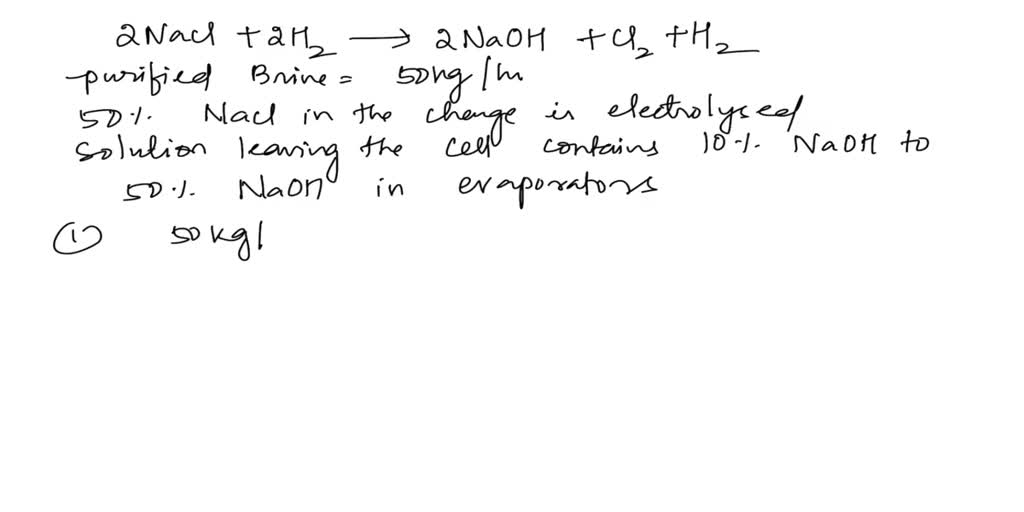 2NaCl + 2H₂ → 2NaOH + Cl₂ + H₂
purified Brine = 50kg/h
50% NaCl in the charge is electrolysed
solution leaving the cell contains 10% NaOH to
50% NaOH in evaporators
① 50kg/